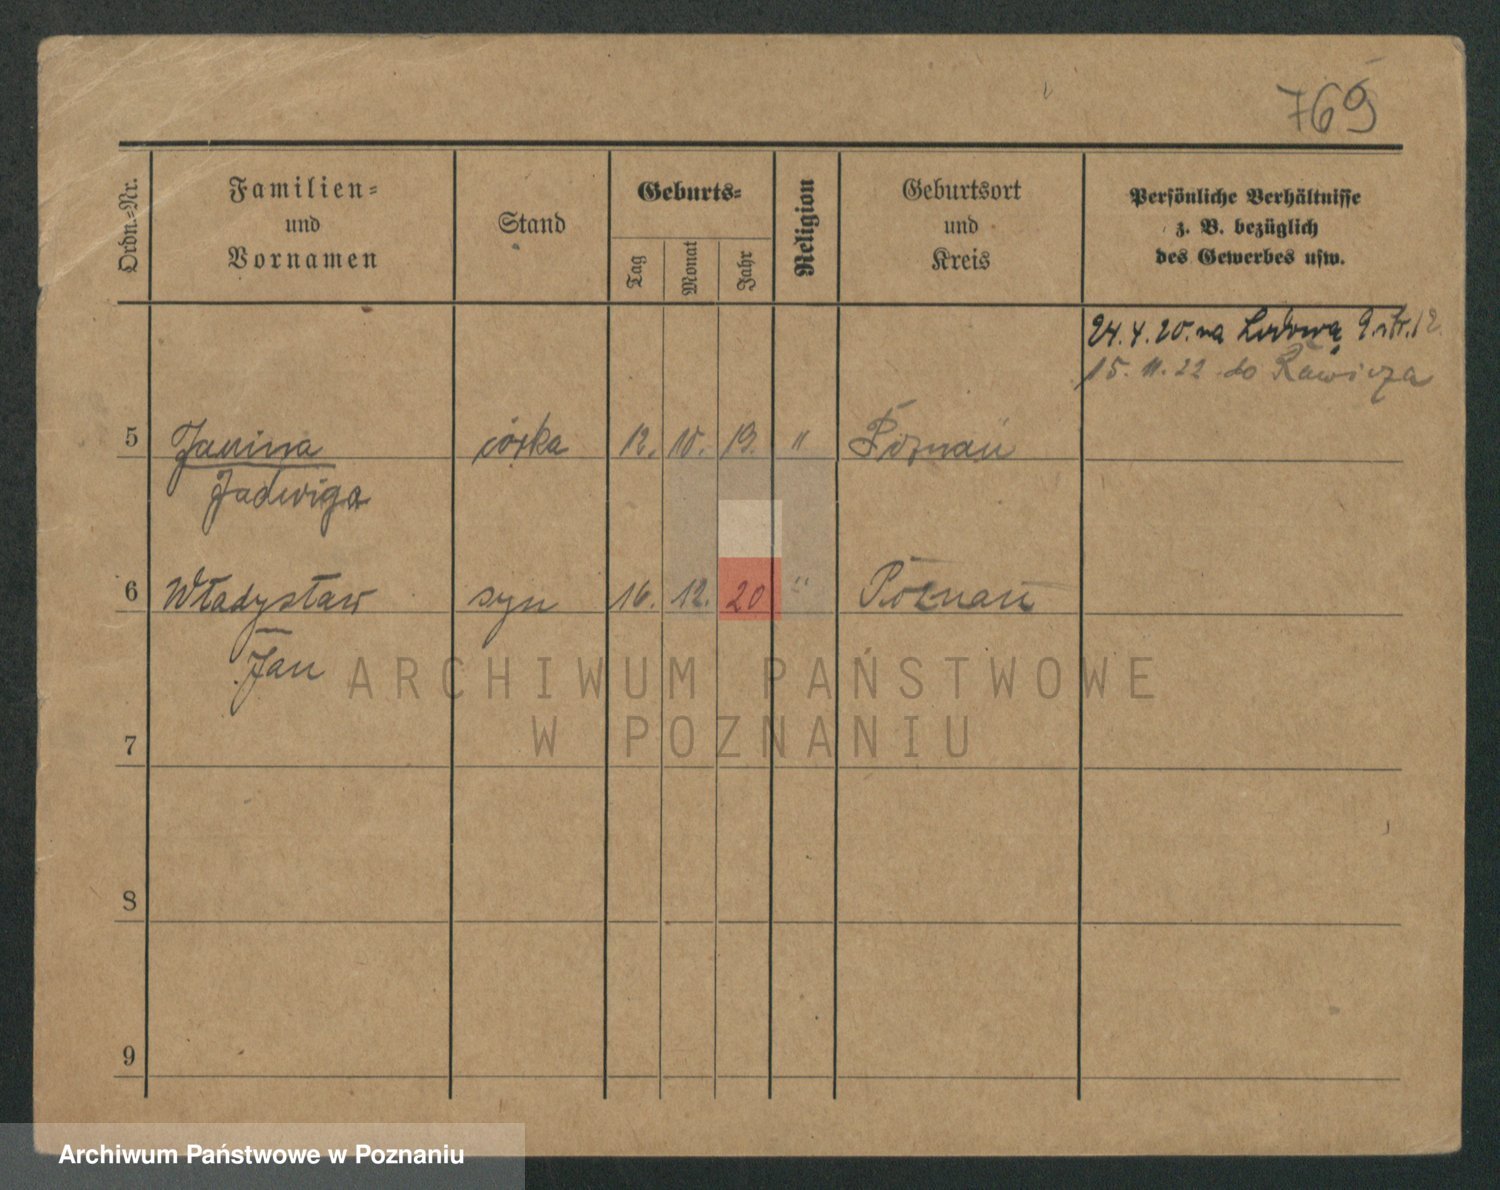 769
Ordn.=Nr.
Familien=
und
Vornamen
Stand
Geburts=
Tag
Monat
Jahr
Religion
Geburtsort
und
Kreis
Persönliche Verhältnisse
z. B. bezüglich
des Gewerbes usw.
24. 4. 20. na
15. 11. 22 do Rawicza
5 Janina córka 12. 10. 13. " Poznań
Jadwiga
6 Władysław syn 16. 12. 20 " Poznań
Jan
ARCHIWUM PAŃSTWOWE
W POZNANIU
7
8
9
Archiwum Państwowe w Poznaniu